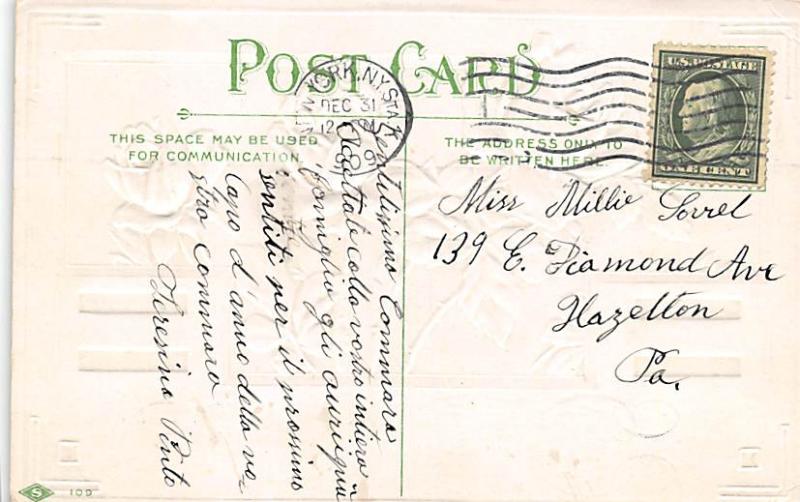 POST CARD
NEW YORK, N.Y. STA.
DEC 31
12
U.S. POSTAGE
ONE CENT
THIS SPACE MAY BE USED
FOR COMMUNICATION.
THE ADDRESS ONLY TO
BE WRITTEN HERE.
Gentilisima Commara
Accettate colla vostra intiera
famiglia gli auriguri
sentiti per il prossimo
Capo d'anno della vo-
stra commara
Teresina Pinto
Miss Millie Sorrel
139 E. Diamond Ave
Hazelton
Pa.
S
109